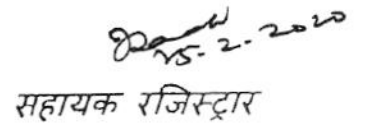 15-2-2020
सहायक रजिस्ट्रार